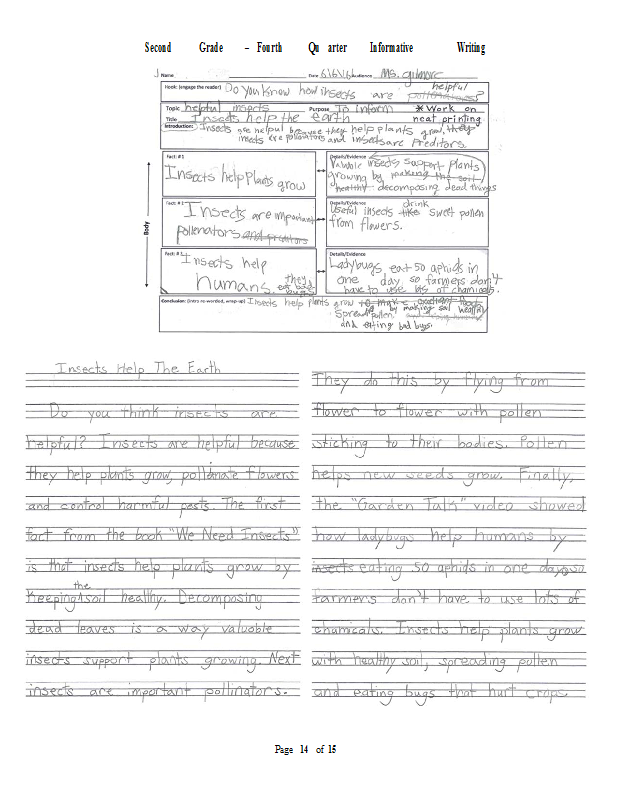 Second Grade – Fourth Quarter Informative Writing
Name Date 6/6/16 Audience Ms. Gilmore
Hook: (engage the reader) Do you know how insects are pollenators? helpful
Topic helpful insects Purpose To inform * Work on
Title Insects help the earth neat printing
Introduction: Insects are helpful because they help plants grow, they
insects are pollinators and insects are Preditors.
Body
Fact: #1
Insects help plants grow
Details/Evidence
Valuble insects support plants
growing by making the soil
healthy decomposing dead things
Fact: #
Insects are important
pollenators and preditors
Details/Evidence
Useful insects like drink sweet pollen
from flowers.
Fact: #
Insects help
humans. they
eat bad
bugs
Details/Evidence
Ladybugs eat 50 aphids in
one day so farmers don't
have to use lots of chamicals.
Conclusion: Insects help plants grow by making soil healthy
Spread pollen,
and eating bad bugs.
Insects Help The Earth
Do you think insects are
helpful? Insects are helpful because
they help plants grow, pollinate flowers
and control harmful pests. The first
fact from the book "We Need Insects"
is that insects help plants grow by
keeping the soil healthy. Decomposing
dead leaves is a way valuable
insects support plants growing. Next
insects are important pollinators.
They do this by flying from
flower to flower with pollen
sticking to their bodies. Pollen
helps new seeds grow. Finally,
the "Garden Talk" video showed
how ladybugs help humans by
insects eating 50 aphids in one day so
farmers don't have to use lots of
chamicals. Insects help plants grow
with healthy soil, spreading pollen
and eating bugs that hurt crops.
Page 14 of 15